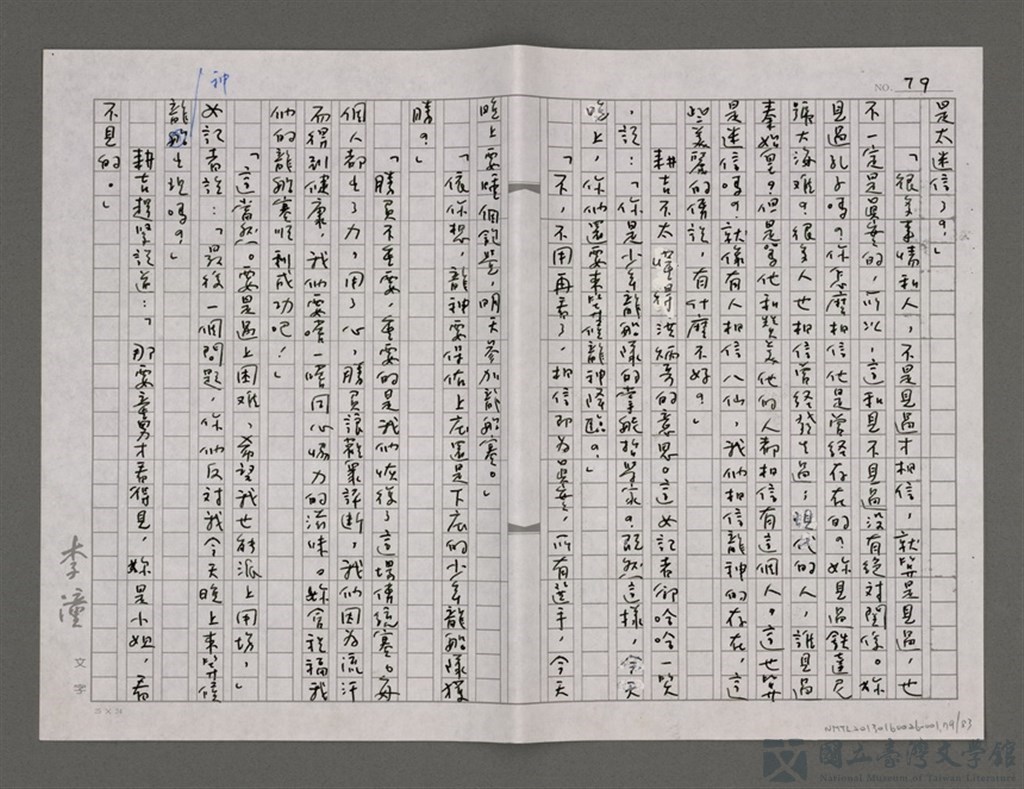 NO. 79
是太迷信了?」
「很多事情和人,不是見過才相信,就算是見過,也
不一定是真實的,所以,這和見不見過沒有絕對關係。妳
見過孔子嗎?你怎麼相信他是曾經存在的?妳見過鐵達尼
號大海難?很多人也相信曾經發生過;現代的人,誰見過
秦始皇?但是罵他和贊美他的人都相信有這個人。這也算
是迷信嗎?就像有人相信八仙,我們相信龍神的存在,這
些美麗的傳說,有什麼不好?」
耕吉不太懂得洪炳奇的意思。這女記者卻哈哈一笑
,說:「你是少年龍船隊的掌舵哲學家?既然這樣,今天
晚上,你們還要來等候龍神降臨?」
「不,不用再看了,相信即為真實,所有選手,今天
晚上要睡個飽覺,明天參加龍船賽。」
「依你想,龍神要保佑上庄還是下庄的少年龍船隊獲
勝?」
「勝負不重要,重要的是我們恢復了這場傳統賽。每
個人都出了力,用了心,勝負讓裁罪評斷,我們因為流汗
而得到健康,我們要嚐一嚐同心協力的滋味。妳會祝福我
們的龍船賽順利成功吧!」
「這當然。要是遇上困難,希望我也能派上用場,」
女記者說:「最後一個問題,你們反對我今天晚上來等候
龍神出現嗎?」
耕吉趕緊說道:「那要童男才看得見,妳是小姐,看
不見的。」
李潼
文字
25 × 24
NMTL20130160026-001,79/83
國立臺灣文學館
National Museum of Taiwan Literature